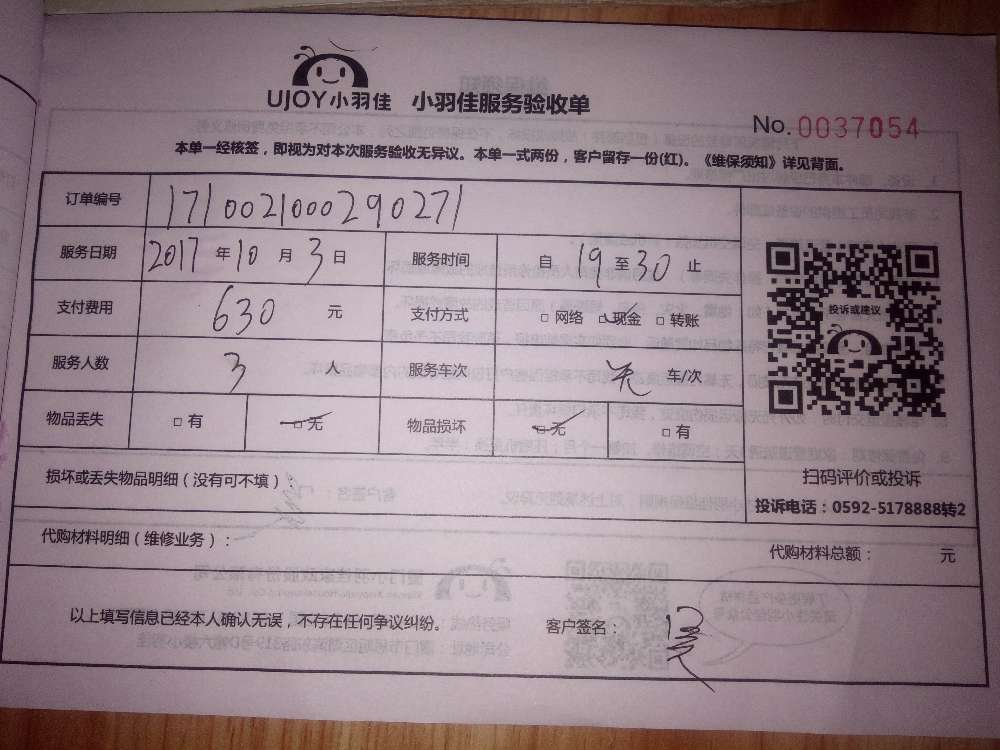 UJOY小羽佳 小羽佳服务验收单
No.0037054
本单一经核签，即视为对本次服务验收无异议。本单一式两份，客户留存一份(红)。《维保须知》详见背面。
订单编号 1710021000290271
服务日期 2017年10月3日 服务时间 自19至30止
支付费用 630元 支付方式 □网络 □现金 □转账
服务人数 3人 服务车次 无 车/次
物品丢失 □有 □无 物品损坏 □无 □有
投诉或建议
扫码评价或投诉
投诉电话：0592-5178888转2
损坏或丢失物品明细（没有可不填）：
代购材料明细（维修业务）： 代购材料总额： 元
以上填写信息已经本人确认无误，不存在任何争议纠纷。 客户签名：